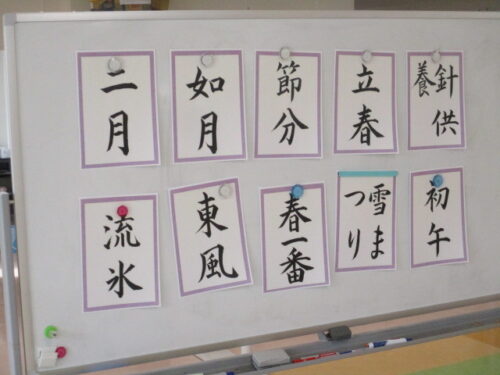 二月
如月
節分
立春
針供養
流氷
東風
春一番
雪まつり
初午